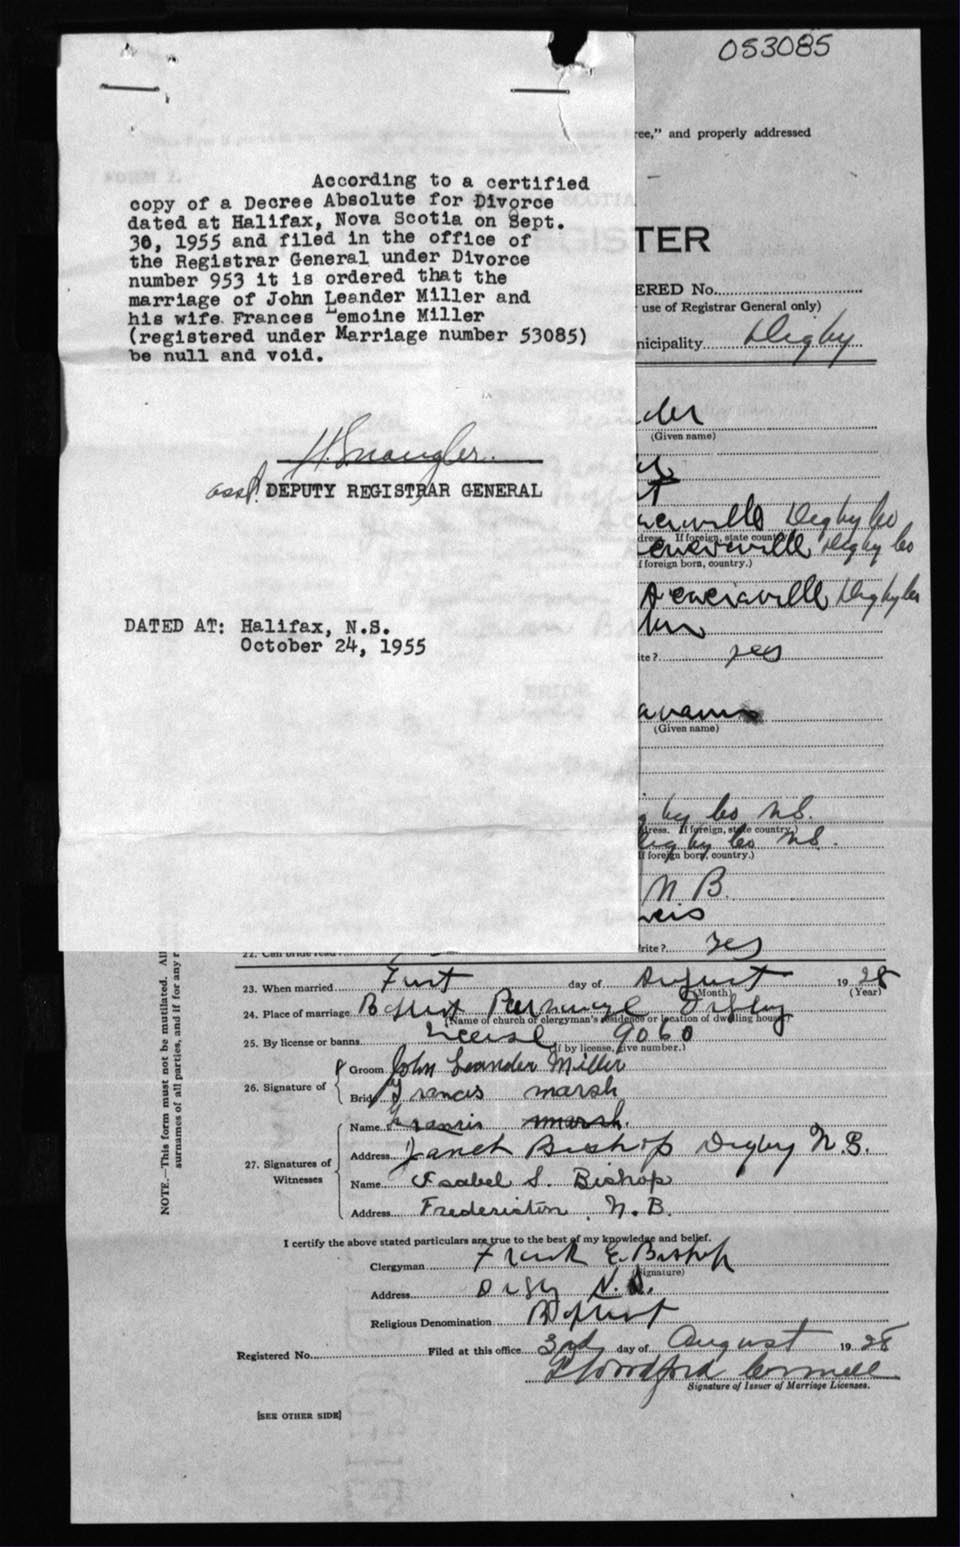 053085
ree," and properly addressed
According to a certified
copy of a Decree Absolute for Divorce
dated at Halifax, Nova Scotia on Sept.
30, 1955 and filed in the office of
the Registrar General under Divorce
number 953 it is ordered that the
marriage of John Leander Miller and
his wife Frances Lemoine Miller
(registered under Marriage number 53085)
be null and void.
asst. DEPUTY REGISTRAR GENERAL
DATED AT: Halifax, N.S.
October 24, 1955
TER
ERED No.
use of Registrar General only)
nicipality Digby
nder
(Given name)
Digby Co
dress. If foreign, state country
Digby Co
f foreign born, country.)
Acaciaville Digby Co
ite? yes
(Given name)
gby Co N.S.
dress. If foreign, state country.)
igby Co N.S.
f foreign born, country.)
N B.
rite? Yes
22. Can bride read
NOTE.—This form must not be mutilated. All
surnames of all parties, and if for any r
23. When married First day of August 1928
(Month) (Year)
24. Place of marriage Baptist Parsonage Digby
(Name of church or clergyman's residence or location of dwelling house)
25. By license or banns License 9060
(If by license, give number.)
26. Signature of
Groom John Leander Miller
Bride Francis Marsh
27. Signatures of Witnesses
Name Francis Marsh.
Address Janet Bishop Digby N.S.
Name Isabel S. Bishop
Address Fredericton, N.B.
I certify the above stated particulars are true to the best of my knowledge and belief.
Clergyman Frank E. Bishop
(Signature)
Address Digby N.S.
Religious Denomination Baptist
Registered No. Filed at this office 3rd day of August 1928
Signature of Issuer of Marriage Licenses.
[SEE OTHER SIDE]